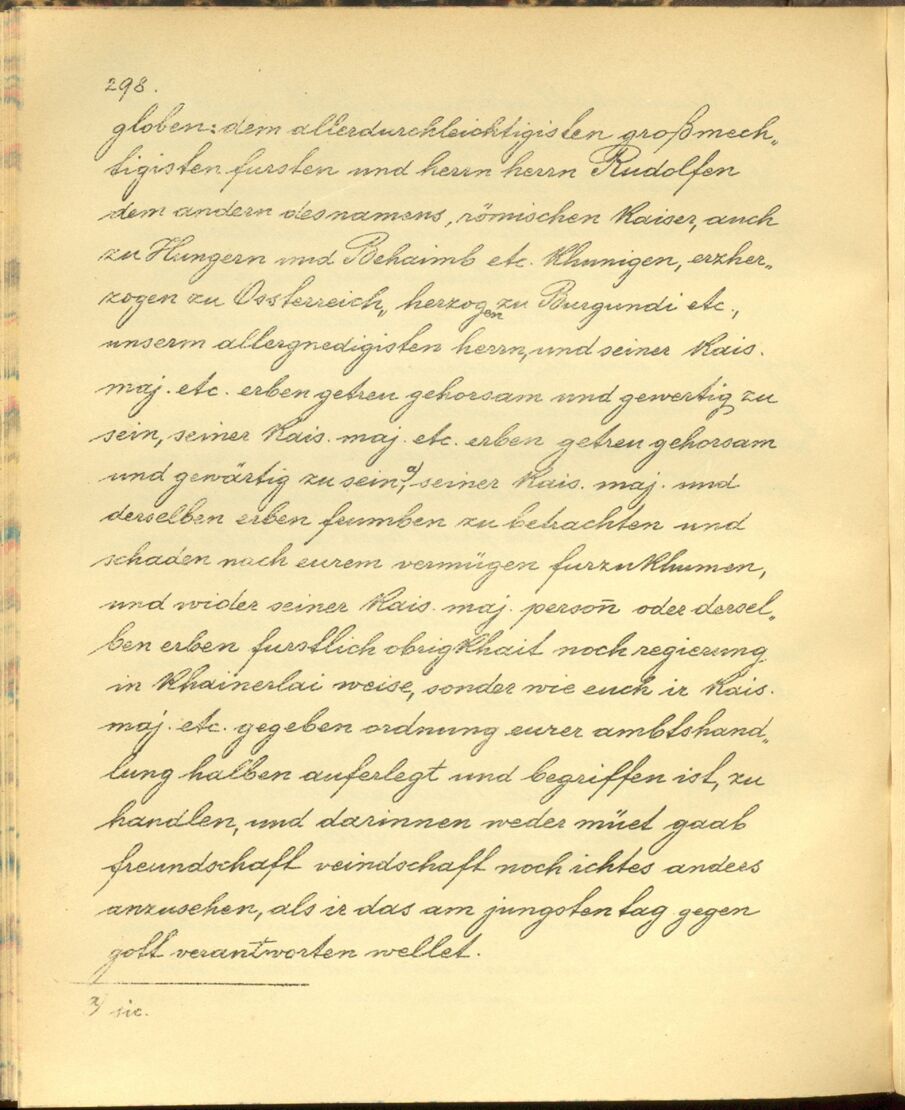 298.
globen: dem allerdurchleichtigisten großmech„
tigisten fursten und herrn herrn Rudolfen
dem andern des namens, römischen Kaiser, auch
zu Hungern und Behaimb etc. Khunigen, erzher„
zogen zu Ossterreich„ herzogen zu Burgundi etc.,
unserm allergnedigisten herrn, und seiner Kais.
maj. etc. erben getreu gehorsam und gewertig zu
sein, seiner Kais. maj. etc. erben getreu gehorsam
und gewärtig zu sein,ᵃ⁾ seiner Kais. maj. und
derselben erben frumben zu betrachten und
schaden nach eurem vermügen furzukhumen,
und wider seiner Kais. maj. person̄ oder dersel„
ben erben furstlich obrigKhait noch regierung
in Khainerlai weise, sonder wie euch ir Kais.
maj. etc. gegeben ordnung eurer ambtshand„
lung halben auferlegt und begriffen ist, zu
handlen, und darinnen weder müet gaab
freundschaft veindschaft noch ichtes anders
anzusehen, als ir das am jungsten tag gegen
gott verantworten wellet.
a) sic.